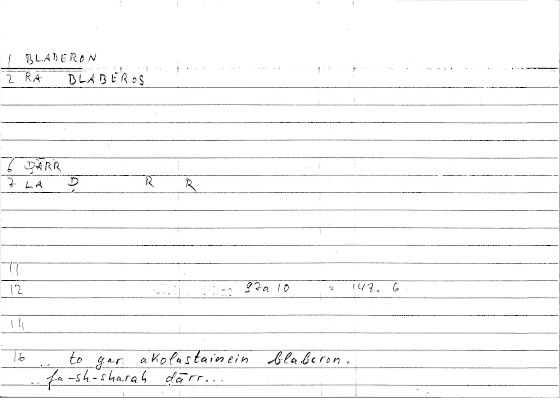 1 BLABERON
2 RA BLABEROS
6 ḌĀRR
7 LA Ḍ R R
11
12 97a10 = 147.6
14
16 .. to gar akolastainein blaberon.
.. fa-sh-sharah ḍārr...